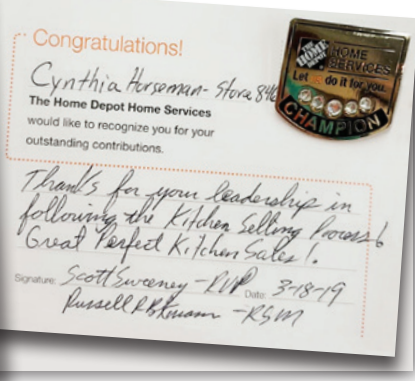 Congratulations!
Cynthia Horseman - Store 846
The Home Depot Home Services
would like to recognize you for your
outstanding contributions.
THE HOME DEPOT
HOME SERVICES
Let us do it for you.
CHAMPION
Thanks for your leadership in
following the Kitchen Selling Process &
Great Perfect Kitchen Sales!.
Signature: Scott Sweeney - RVP Date: 3-18-19
Russell - RSM